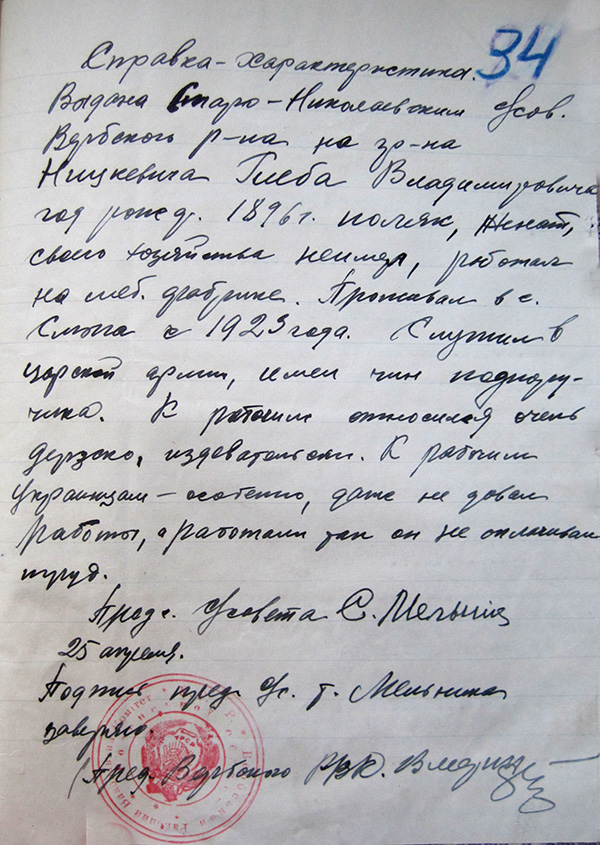 34
Справка-характеристика.
Выдана Старо-Николаевским с/сов.
Вербского р-на на гр-на
Ницкевича Глеба Владимировича
год рожд. 1896 г. поляк, женат,
своего хозяйства неимел, работал
на меб. фабрике. Проживал в с.
Смыга с 1923 года. Служил в
царской армии, имел чин подпору-
чика. К рабочим относился очень
дерзско, издевательски. К рабочим
украинцам – особенно, даже не давал
работы, а работали так он не оплачивал
труд.
Пред. с/совета С. Мельник
25 апреля.
Подпись пред. с/с. т. Мельника
заверяю.
Пред. Вербского РИК.